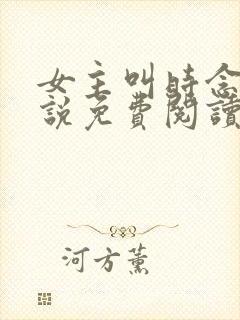 女主叫時念
說免費閱讀
河方薰